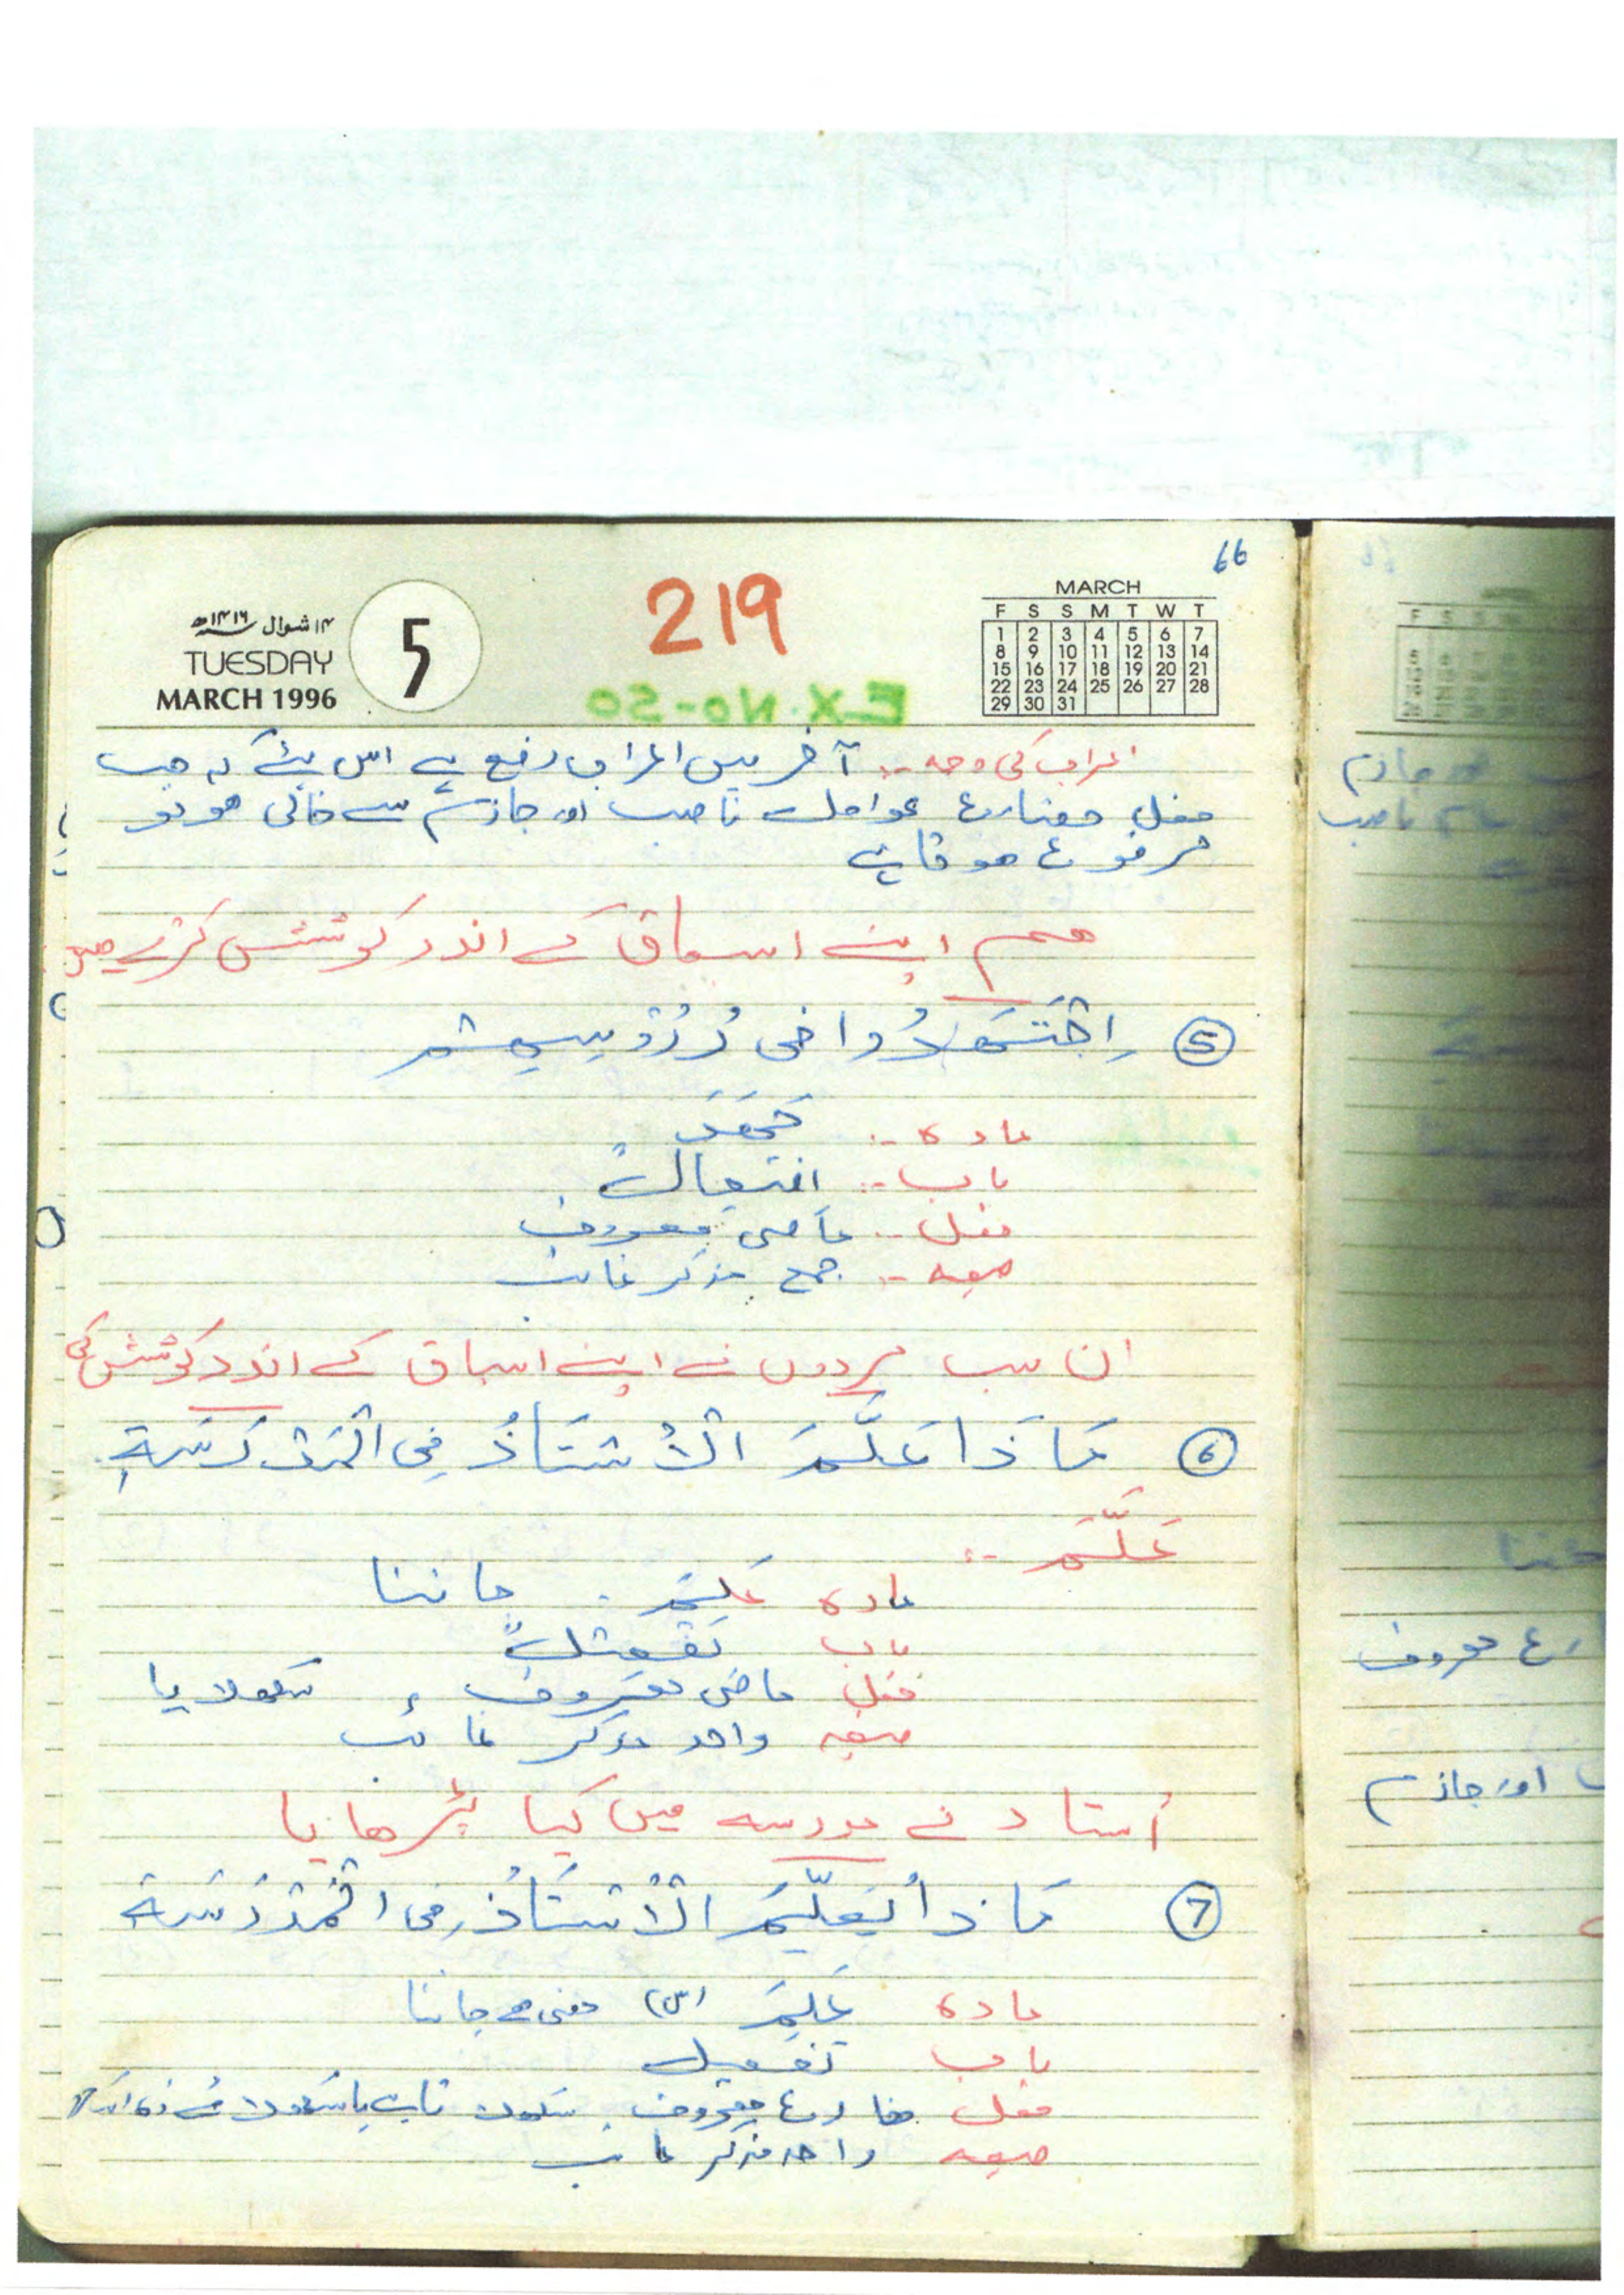 66
219
۱۴ شوال ۱۴۱۶ھ
TUESDAY
MARCH 1996
5
MARCH
F S S M T W T
1 2 3 4 5 6 7
8 9 10 11 12 13 14
15 16 17 18 19 20 21
22 23 24 25 26 27 28
29 30 31
EX.NO-50
اعراب کی وجہ :- آخر میں اعراب رفع ہے اس لئے کہ جب
فعل مضارع عوامل ناصب اور جازم سے خالی ہو تو
مرفوع ہوتا ہے
ہم اپنے اسباق کے اندر کوشش کرتے ہیں
⑤ اِجْتَهَدُوا فی دُرُوْسِهِمْ
مادہ :- جَهَدَ
باب :- افتعالٌ
فعل :- ماضی معروف
صیغہ :- جمع مذکر غائب
ان سب مردوں نے اپنے اسباق کے اندر کوشش کی
⑥ مَاذَا عَلَّمَ الْأُسْتَاذُ فِی الْمَدْرَسَةِ
عَلَّمَ :-
مادہ عَلِمَ . جاننا
باب تفعیلٌ
فعل ماضی معروف ، سکھلایا
صیغہ واحد مذکر غائب
اُستاد نے مدرسہ میں کیا پڑھایا
⑦ مَاذَا یُعَلِّمُ الْأُسْتَاذُ فِی الْمَدْرَسَةِ
مادہ عَلِمَ (س) معنی ہے جاننا
باب تفعیل
فعل مضارع معروف
صیغہ واحد مذکر غائب
ناصب
رع معروف
اور جازم